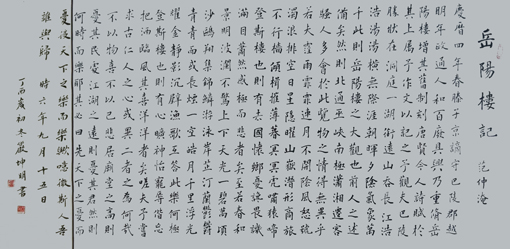 岳陽樓記
范仲淹
慶曆四年春滕子京謫守巴陵郡越
明年政通人和百廢具興乃重脩岳
陽樓增其舊制刻唐賢今人詩賦於
其上屬予作文以記之予觀夫巴陵
勝狀在洞庭一湖銜遠山吞長江浩
浩湯湯橫無際涯朝暉夕陰氣象萬
千此則岳陽樓之大觀也前人之述
備矣然則北通巫峽南極瀟湘遷客
騷人多會於此覽物之情得無異乎
若夫霪雨霏霏連月不開陰風怒號
濁浪排空日星隱曜山嶽潛形商旅
不行檣傾楫摧薄暮冥冥虎嘯猿啼
登斯樓也則有去國懷鄉憂讒畏譏
滿目蕭然感極而悲者矣至若春和
景明波瀾不驚上下天光一碧萬頃
沙鷗翔集錦鱗游泳岸芷汀蘭鬱鬱
青青而或長煙一空皓月千里浮光
耀金靜影沉璧漁歌互答此樂何極
登斯樓也則有心曠神怡寵辱偕忘
把酒臨風其喜洋洋者矣嗟夫予嘗
求古仁人之心或異二者之為何哉
不以物喜不以己悲居廟堂之高則
憂其民處江湖之遠則憂其君然則
何時而樂耶其必曰先天下之憂而
憂後天下之樂而樂歟噫微斯人吾
誰與歸 時六年九月十五日
丁酉初冬 明書